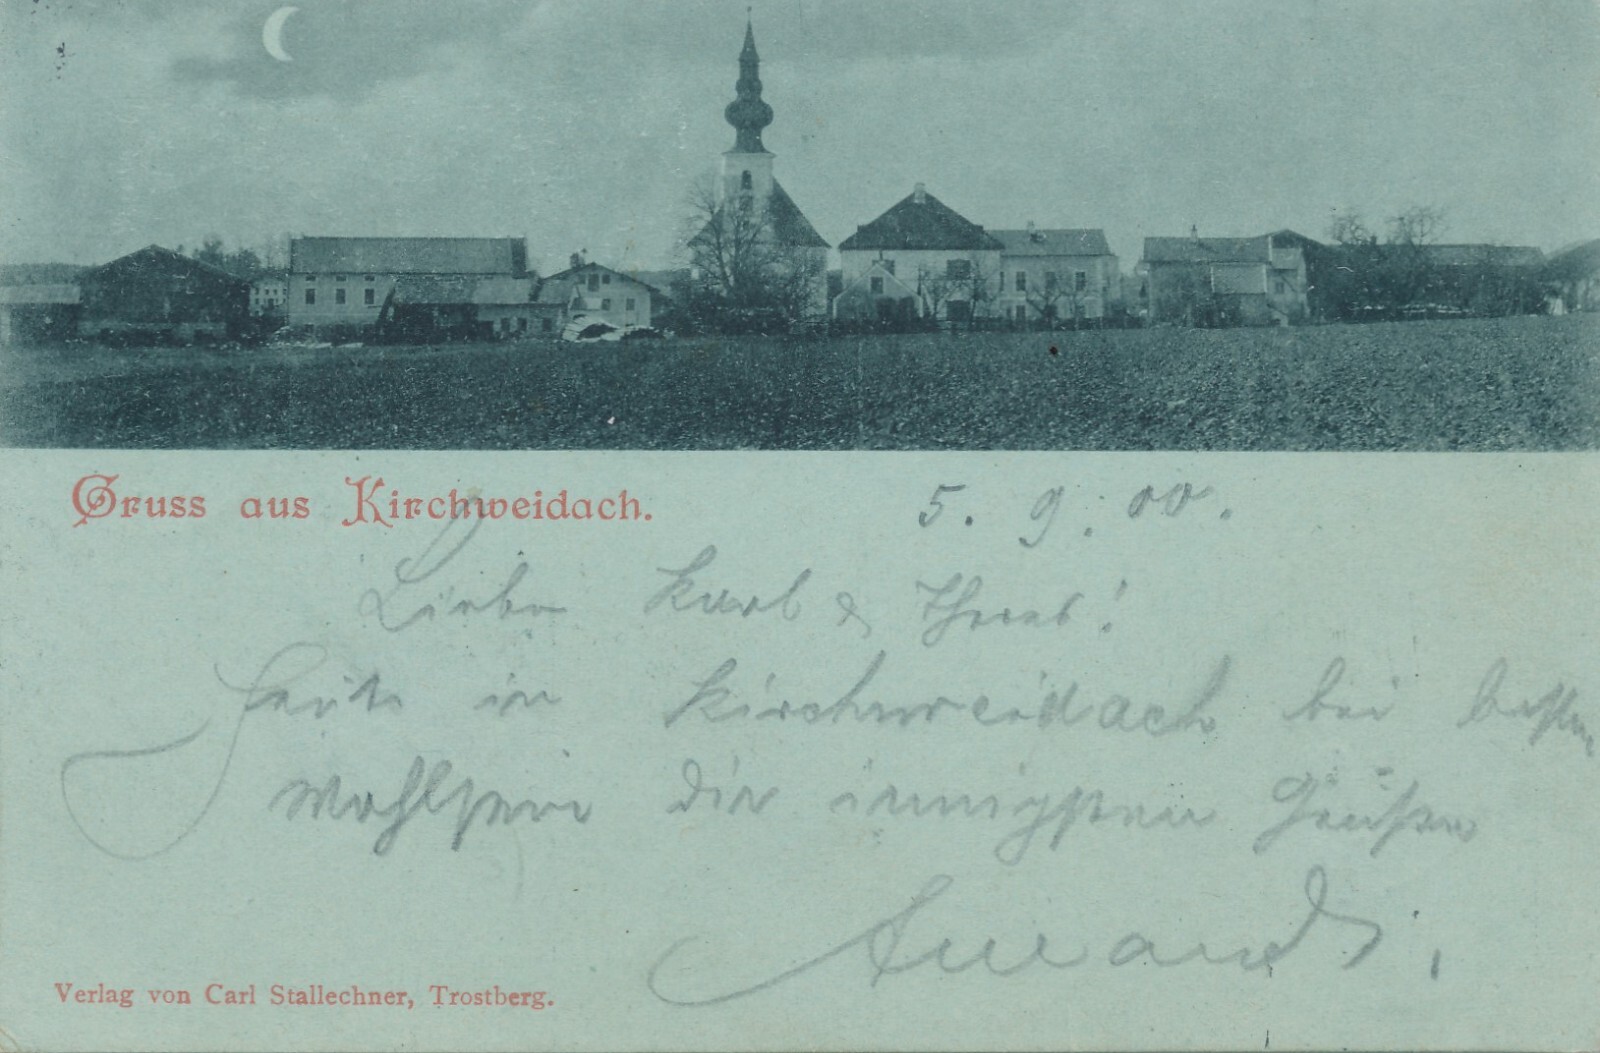 Gruss aus Kirchweidach.
5. 9. 00.
Liebe Karl & Theres!
Heute in Kirchweidach bei bestem
Wohlsein die innigsten Grüße
Verlag von Carl Stallechner, Trostberg.